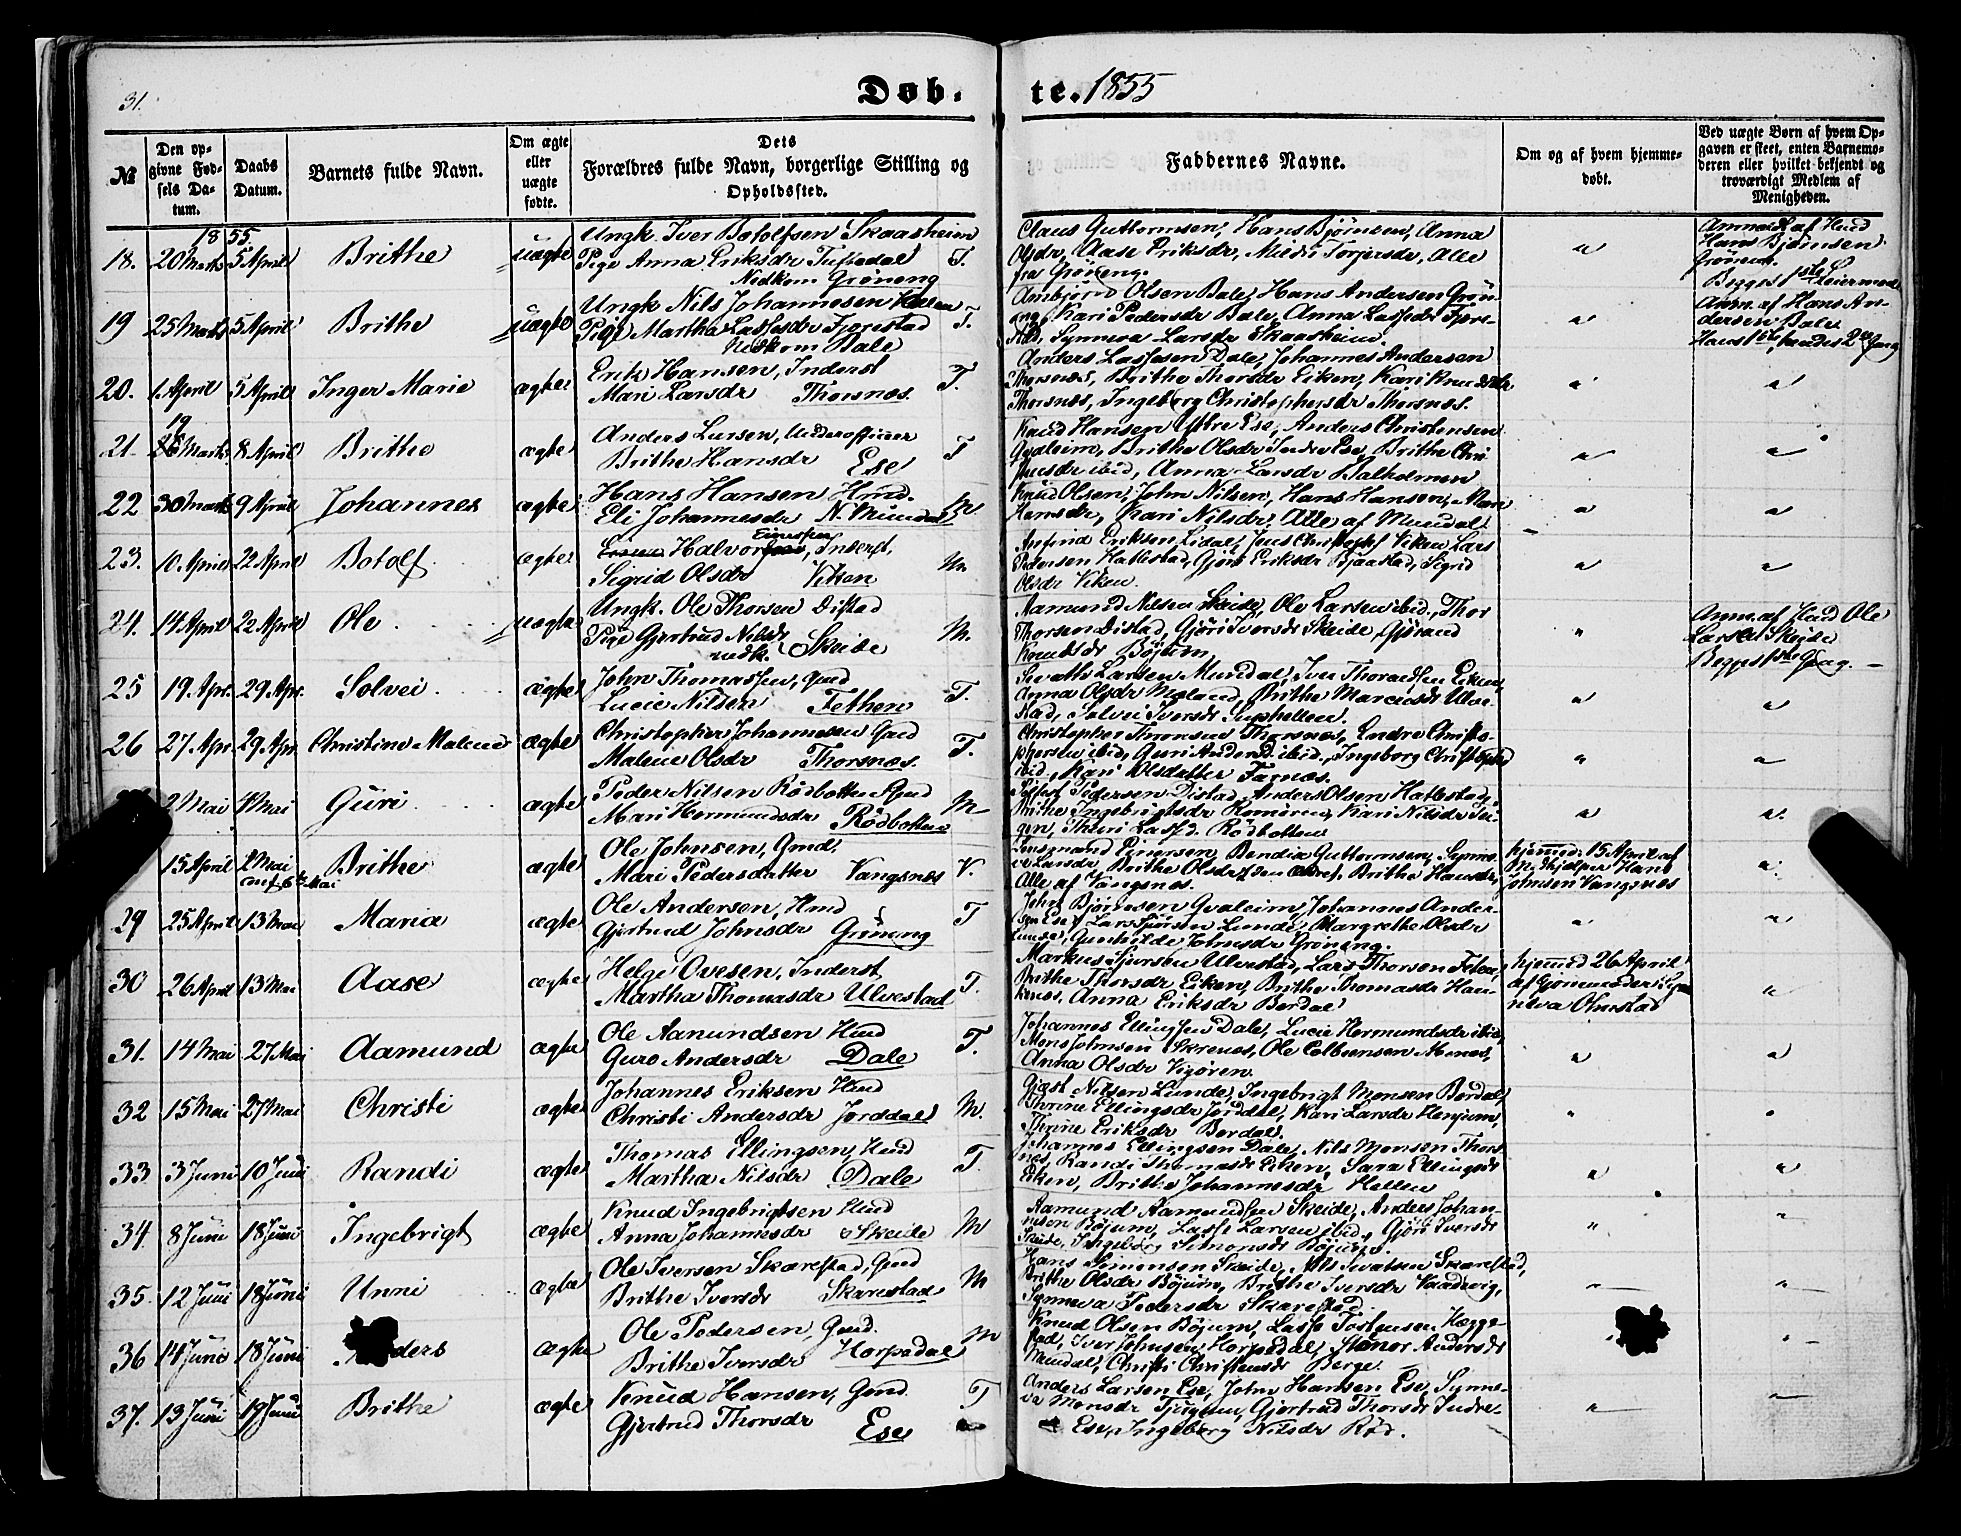 31.
Døb-
te. 1855
№
Den op-
givne Fød-
sels Da-
tum.
Daabs
Datum.
Barnets fulde Navn.
Om ægte
eller
uægte
fødte.
Dets
Forældres fulde Navn, borgerlige Stilling og
Opholdssted.
Faddernes Navne.
Om og af hvem hjemme-
døbt.
Ved uægte Børn af hvem Op-
gaven er skeet, enten Barnemo-
deren eller hvilket bekjendt og
troværdigt Medlem af
Menigheden.
1855.
18. 20 Marts 5 April Brithe uægte
Ungk. Iver Botolfsen Skaasheim
Pige Anna Eriksdr Tufsedal T.
Nedkom Grøneng
Claus Guttormsen, Hans Bjørnsen, Anna
Olsdr, Aase Eriksdr, Torjersdr, Alle
fra Grøneng.
"
Anm. af Hmd
Hans Bjørnsen
Grøneng.
Begges 1ste Leiermaal
19 25 Marts 5 April Brithe uægte
Ungk Nils Johannesen
Pige Martha Lassesdr Fjørestad T.
Nedkom Bale
Ambjørn Olsen Bale, Hans Andersen Grøn-
eng, Kari Pedersdr Bale, Anna Lassesdr Fjøre-
stad, Synneva Larsdr Skaasheim.
"
Anm. af Hans An-
dersen Bale
Hans 1ste, hendes 2den Gang
20. 1 April 5 April Inger Marie ægte
Erik Hansen, Inderst
Mari Larsdr Thorsnæs. T.
Anders Lassesen Dale, Johannes Andersen
Thorsnæs, Brithe Thorsdr Eiken, Kari Knudsdr
Thorsnæs, Ingeborg Christophersdr Thorsnæs.
" "
19
21. 26 Marts 8 April Brithe ægte
Anders Larsen, Underofficeer
Brithe Hansdr Ese T
Knud Hansen Ytre Ese, Anders Christensen
Qvaleim, Brithe Olsdr Indre Ese, Brithe Chri-
ibid, Anna Larsdr Balholmen
" "
22 30 Marts 9 April Johannes ægte
Hans Hansen Hmd.
Eli Johannesdr N. Mundal M
Knud Olsen, John Nilsen, Hans Hansen, Mari
Hansdr, Kari Nilsdr. Alle af Mundal.
" "
23. 10 April 22 April Botolf ægte
Halvor Einersen, Inderst,
Sigrid Olsdr Viken M.
Arfind Eriksen Lidal, Jens Christophf Viken, Lars
Pedersen Hatlestad, Gjøri Eriksdr Bjaastad, Sigrid
Olsdr Viken.
" "
24. 14 April 22 April Ole uægte
Ungk. Ole Thorsen Distad
Pige Gjertrud Nilsdr
nedk. Skeide M.
Aamund Nilsen Skeide, Ole Larsen ibid., Thor
Thorsen Distad, Gjøri Iversdr Skeide, Gjørand
Knudsdr Bøjum,
"
Anm. af Hmd Ole
Larsen Skeide
Begges 1ste Gang. —
25 19 Apr. 29 Apr. Solvei ægte
John Thomassen, Gmd
Lucie Nilsen Fethen T.
Larsen Mundal, Iver Thoradsen Eiken,
Anna Olsdr Meland, Brithe Marcusdr Ulve-
stad, Solvei Iversdr Suphellen.
" "
26 27 Apr. 29 Apr. Christine Malene ægte
Christopher Johannesen Gmd
Malene Olsdr Thorsnæs. T.
Christopher Thronsen Thorsnæs, Endre Christo-
phersen ibid, Guri Andersd. ibid, Ingeborg Christophd
ibid, Kari Olsdatter Farnæs.
" "
2 Mai 4 Mai Guri ægte
Peder Nilsen Rødbotten Gmd
Mari Hermundsdr Rødbotten M
Pedersen Distad, Anders Olsen Hatlestad,
Brithe Ingebrigtsdr Romøren, Kari Nilsdr
Thuri Lassd. Rødbotten
" "
15 April 2 Mai
conf. 6te Mai Brithe ægte
Ole Johnsen, Gmd.
Mari Pedersdatter Vangsnæs V.
Einersen, Bendix Guttormsen, Synne-
ve Larsdr, Brithe Olsdr, Brithe Hansdr,
Alle af Vangsnæs.
hjemmed: 15 April af
Medhjelper Hans
Johnsen Vangsnæs
"
29 25 April 13 Mai Maria ægte
Ole Andersen, Hmd
Gjertrud Johnsdr Grøneng T
John Bjørnsen Qvaleim, Johannes Ander-
sen Ese, Lars Sjursen Lunde, Margrethe Olsdr
Lunde, Gunhilde Johnsdr Grøneng.
" "
30 26 April 13 Mai Aase ægte
Helge Ovesen, Inderst
Martha Thomasdr Ulvestad T.
Markus Sjursen Ulvestad, Lars Thorsen Feten,
Brithe Thorsdr Eiken, Brithe Thomasdr Hau-
knæs, Anna Eriksdr Berdal
hjemmed 26 April
af Gjormoder Syn-
neva Olmstad
"
31. 14 Mai 27 Mai Aamund ægte
Ole Aamundsen Hmd
Guro Andersdr Dale T.
Johannes Ellingsen Dale, Lucie Hermundsdr ibid,
Mons Johnsen Skrenes, Ole Menes,
Anna Olsdr Vigøren.
" "
32 15 Mai 27 Mai Christi ægte
Johannes Eriksen Hmd
Christi Andersdr Jorddal M.
Gjæst Nilsen Lunde, Ingebrigt Monsen Berdal,
Thrine Ellingsdr Jorddal, Kari Larsdr Henjum,
Thrine Eriksdr Berdal.
" "
33. 3 Juni 10 Juni Randi ægte
Thomas Ellingsen, Hmd
Martha Nilsdr Dale T
Johannes Ellingsen Dale, Nils Monsen Thors-
nes, Randi Thomasdr Eiken, Sara Ellingsdr
Eiken, Brithe Johannesdr Hellen
" "
34. 8 Juni 18 Juni Ingebrigt ægte
Knud Ingebrigtsen Hmd
Anna Johannesdr Skeide M
Aamund Aamundsen Skeide, Anders Johan-
nesen Bøjum, Lasse Larsen ibid, Gjøri Iversdr
Skeide, Ingeborg Simonsdr Bøjum.
" "
35. 12 Juni 18 Juni Unni ægte
Ole Iversen Skarestad, Gmd
Brithe Iversdr Skarestad M
Hans Simonsen Skeide, Nils Skarestad,
Brithe Olsdr Bøjum, Brithe Iversdr
Synneva Pedersdr Skarestad.
" "
36 14 Juni 18 Juni ders ægte
Ole Pedersen, Gmd.
Brithe Iversdr Horpedal M
Knud Olsen Bøjum, Lasse Torstensen Hægge-
stad, Iver Johnsen Horpedal, Andersdr
Mundal, Christi Christensdr Berge. —
37. 13 Juni 19 Juni Brithe ægte
Knud Hansen, Gmd.
Gjertrud Thorsdr Ese T
Anders Larsen Ese, John Hansen Ese, Synne-
ve Monsdr Tjugum, Gjertrud Thorsdr Indre-
Ese, Ingeborg Nilsdr Rød.
" "